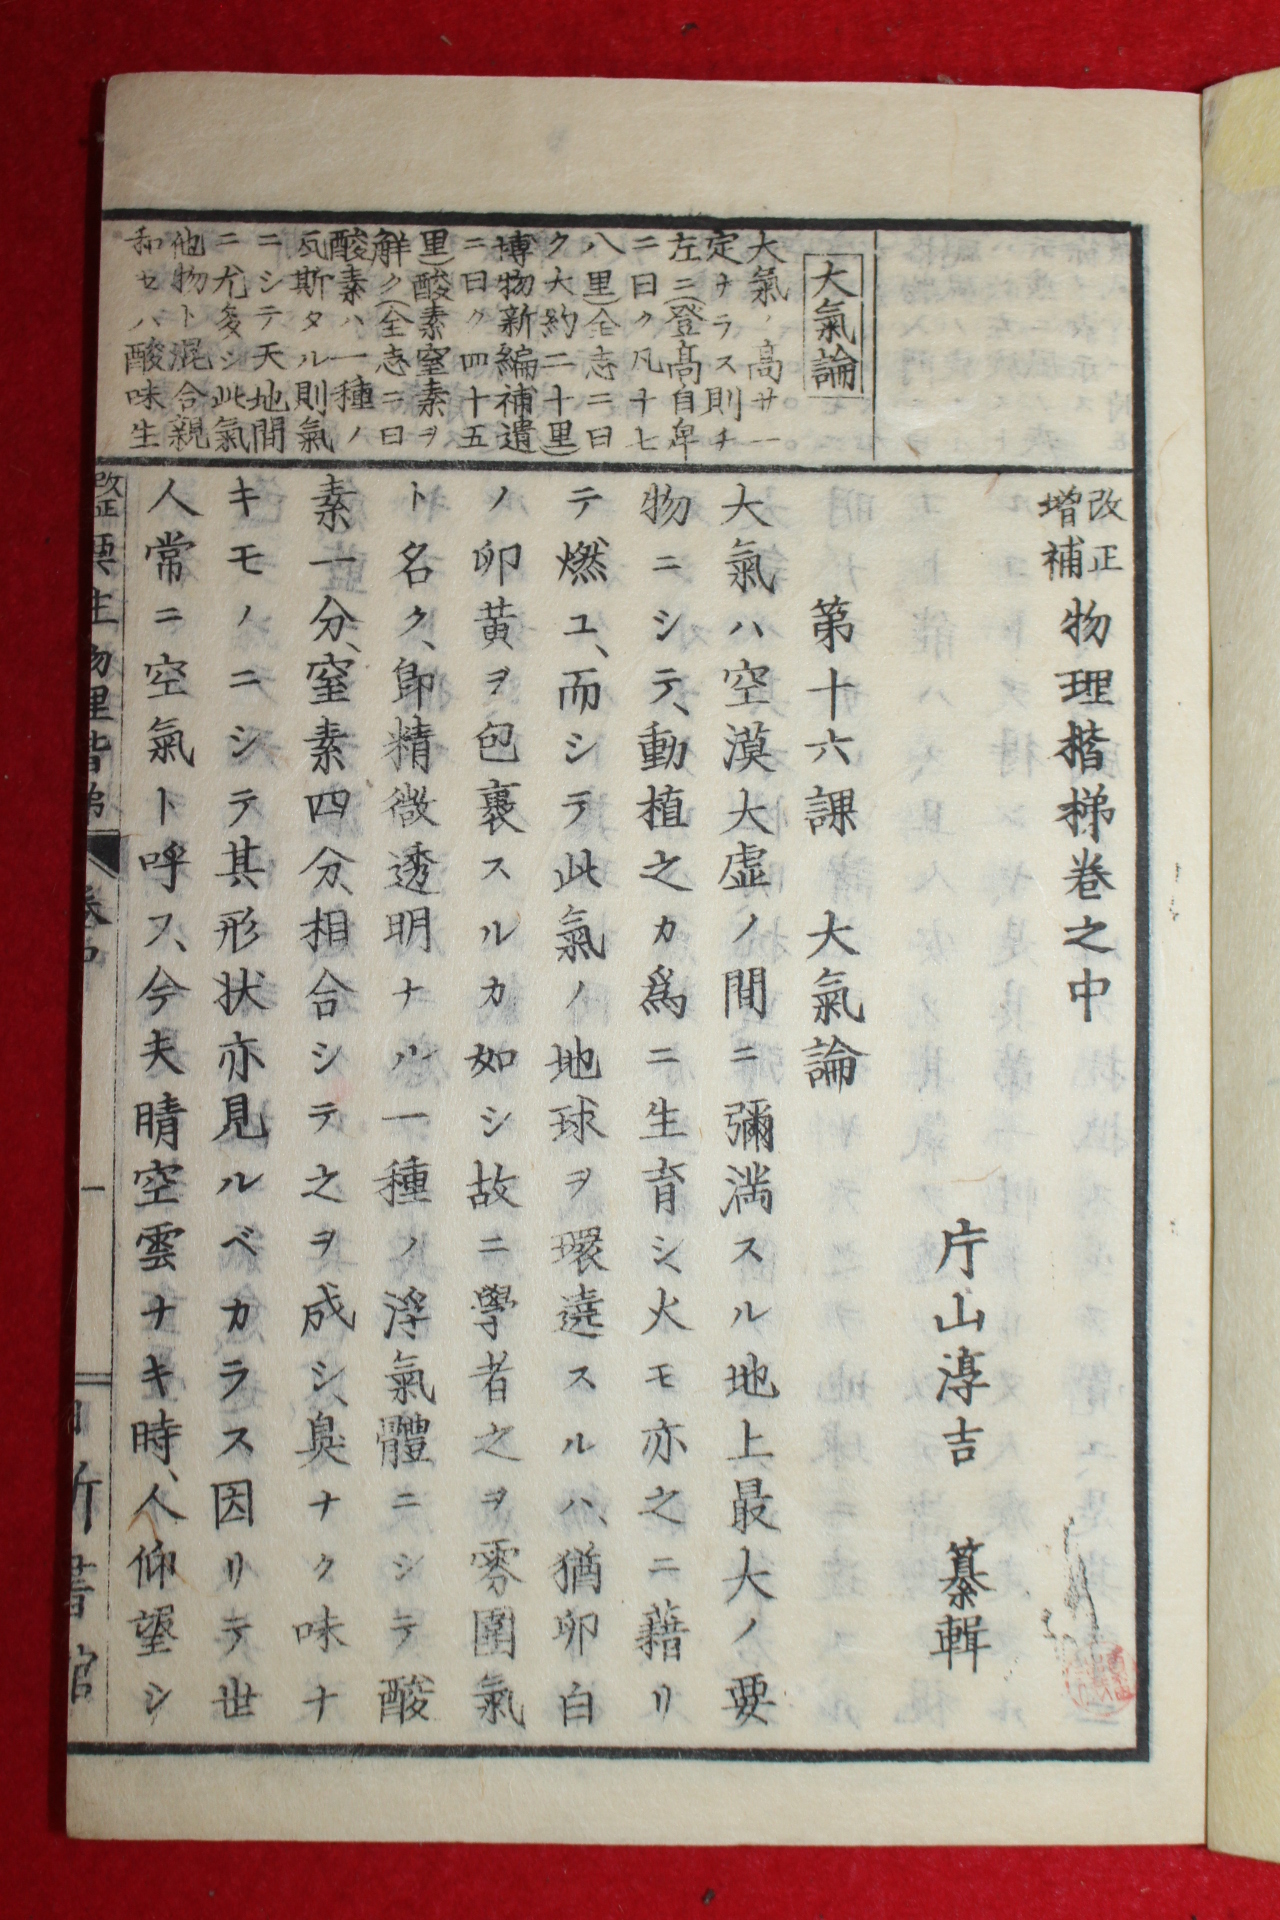 改正
増補
物理楷梯卷之中
片山淳吉　纂輯
第十六課　大氣論
大氣ハ空漠大虛ノ間ニ彌滿スル地上最大ノ要
物ニシテ、動植之カ爲ニ生育シ、火モ亦之ニ藉リ
テ燃ユ、而シテ此氣ノ地球ヲ環遶スルハ、猶卵白
ノ卵黄ヲ包裹スルカ如シ故ニ學者之ヲ雰圍氣
ト名ク、卽精微透明ナル一種ノ浮氣體ニシテ酸
素一分、窒素四分、相合シテ之ヲ成シ、臭ナク味ナ
キモノニシテ其形狀亦見ルベカラス因リテ世
人常ニ空氣ト呼ス、今夫晴空雲ナキ時、人仰望シ
大氣論
大氣ノ高サ一
定ナラス則チ
左ニ(登高自卑
ニ曰ク凡十七
八里)(全志ニ曰
ク大約二十里)
(博物新編補遺
ニ曰ク四十五
里)酸素窒素ヲ
解ク(全志ニ曰
酸素ハ一種ノ
瓦斯タル則氣
ニシテ天地間
ニ尤多シ此氣
他物ト混合親
和セハ酸味生
改正
物理階梯
卷中
一